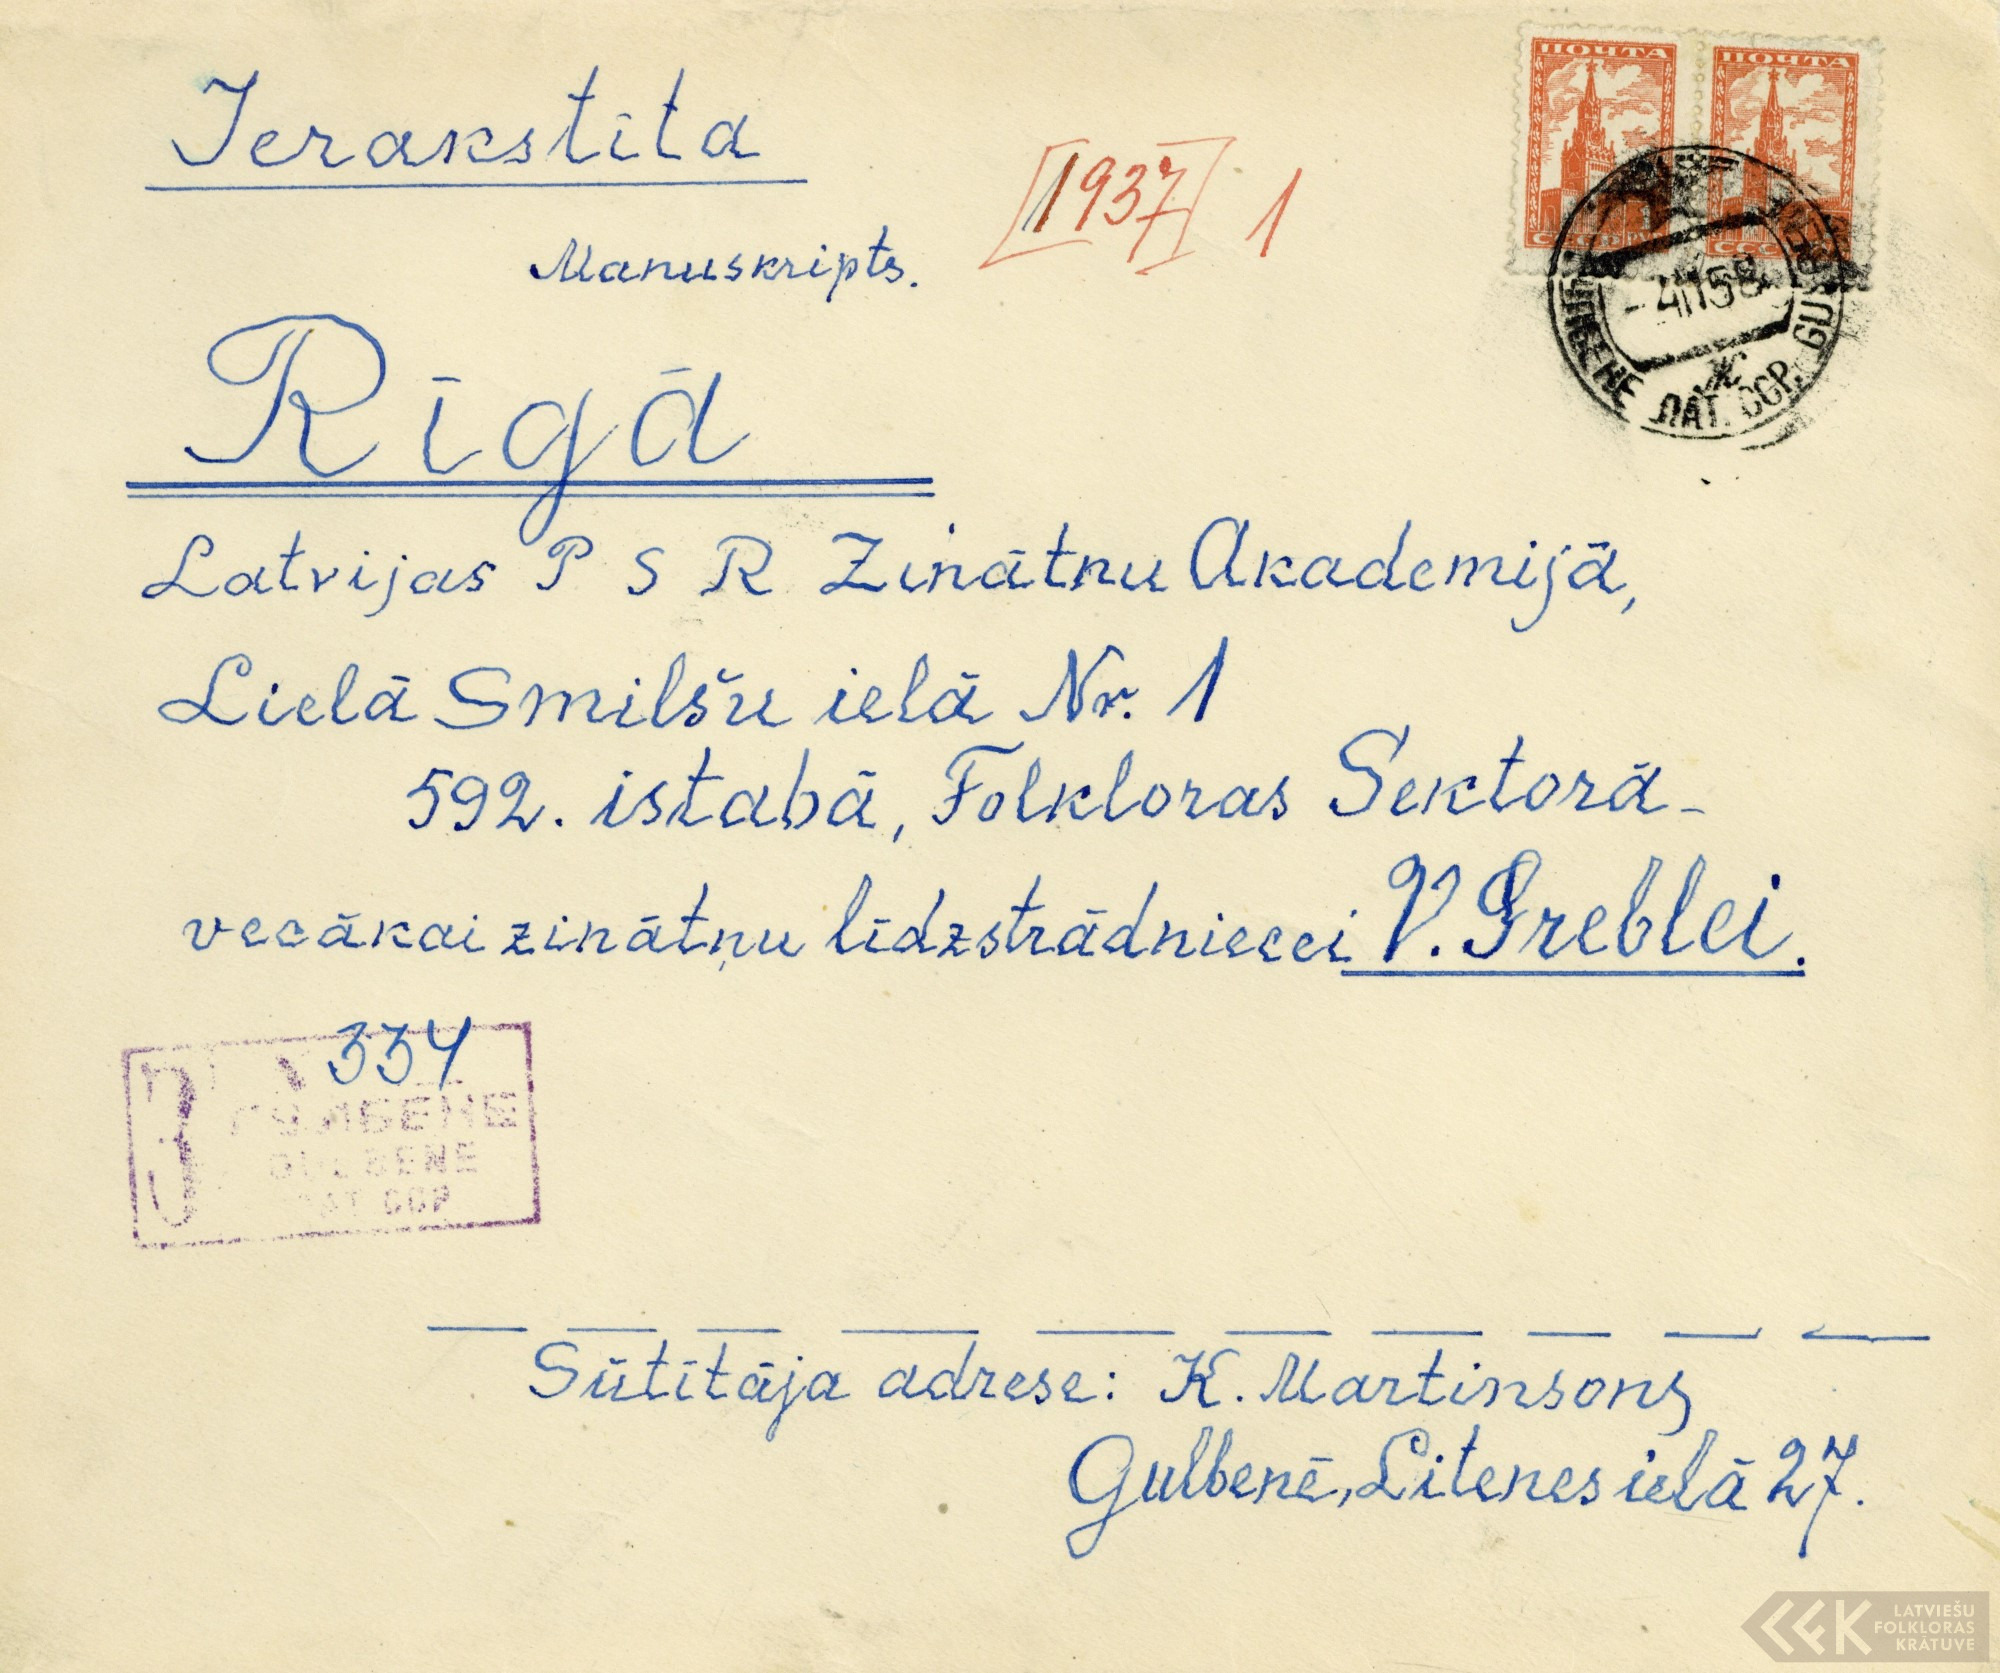 Ierakstīta
Manuskripts.
[1937] 1
ПОЧТА
ПОЧТА
1
РУБ
СССР
СССР
-4 11 58
ГУЛБЕНЕ ЛАТ. ССР. GULBENE
Rīgā
Latvijas P S R Zinātnu Akademijā,
Lielā Smilšu ielā Nr. 1
592. istabā, Folkloras Sektorā-
vecākai zinātņu līdzstrādniecei V. Greblei.
334
З
ГУЛБЕНЕ
GULBENE
ЛАТ ССР
Sūtītāja adrese: K. Martinsons
Gulbenē, Litenes ielā 27.
LATVIEŠU
FOLKLORAS
KRĀTUVE